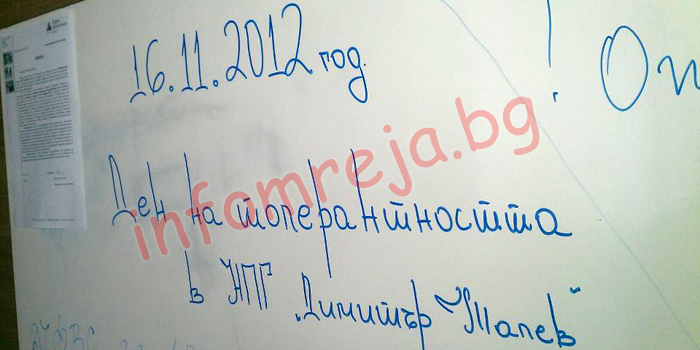 16.11.2012 год.
! Оп
Ден на толерантността
в НПГ „Димитър Талев"
infomreja.bg